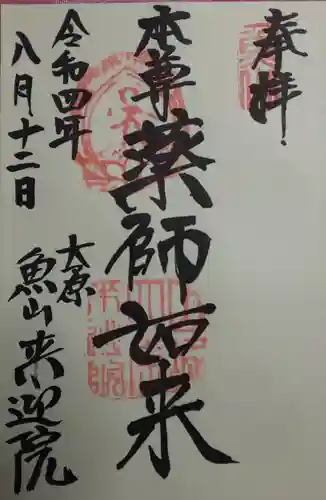 奉拝
本尊 薬師如来
令和四年
八月十二日
大原
魚山来迎院